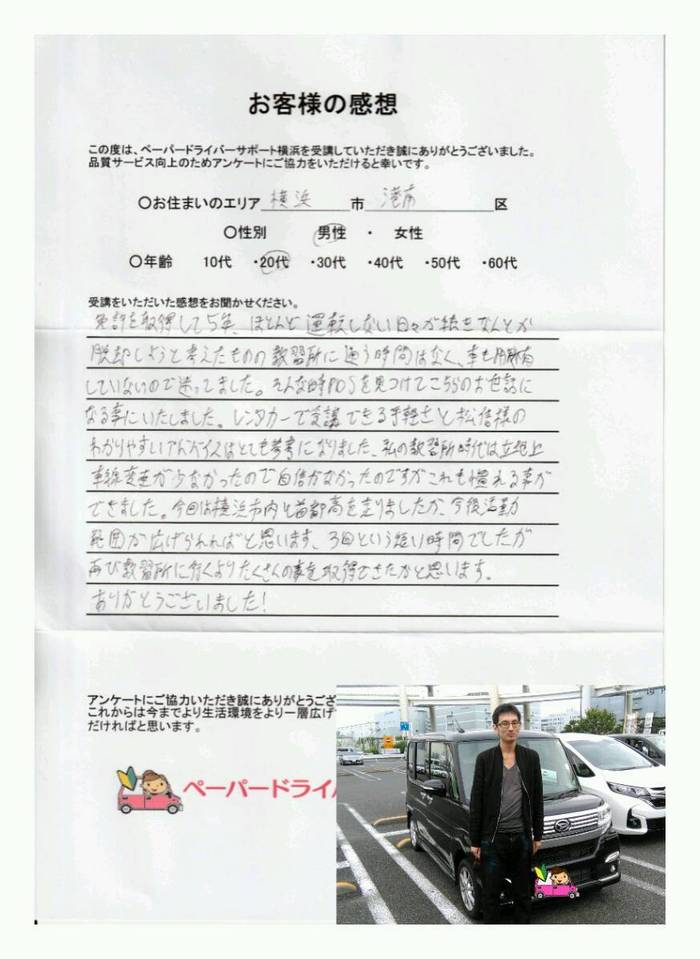 お客様の感想
この度は、ペーパードライバーサポート横浜を受講していただき誠にありがとうございました。
品質サービス向上のためアンケートにご協力をいただけると幸いです。
○お住まいのエリア 横浜 市 港南 区
○性別 男性 ・ 女性
○年齢 10代 ・20代 ・30代 ・40代 ・50代 ・60代
受講をいただいた感想をお聞かせください。
免許を取得して5年、ほとんど運転しない日々が続きなんとか
脱却しようと考えたものの教習所に通う時間はなく、車も所有
していないので迷ってました。そんな時PDSを見つけてこちらのお世話に
なる事にいたしました。レンタカーで受講できる手軽さと松倍様の
わかりやすいアドバイスはとても参考になりました。私の教習所時代は立地上
車線変更が少なかったので自信がなかったのですがこれも慣れる事が
できました。今回は横浜市内と首都高を走りましたが、今後活動
範囲が広げられればと思います。3回という短い時間でしたが
再び教習所に行くよりたくさんの事を取得できたかと思います。
ありがとうございました!
アンケートにご協力いただき誠にありがとうござ
これからは今までより生活環境をより一層広げ
だければと思います。
ペーパードライバ